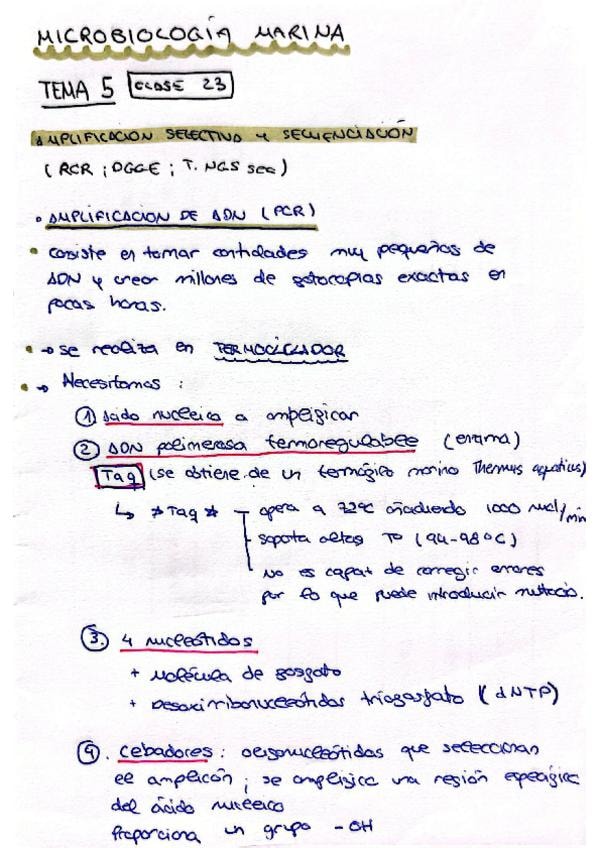 MICROBIOLOGÍA MARINA
TEMA 5 CLASE 23
AMPLIFICACION SELECTIVA y SECUENCIACIÓN
(PCR; DGGE; T. NGS sec)
• AMPLIFICACION DE ADN (PCR)
• Consiste en tomar cantidades muy pequeñas de
ADN y crear millones de fotocopias exactas en
pocas horas.
• → se realiza en TERMOCICLADOR
• → Necesitamos :
① Ácido nucleico a amplificar
② ADN polimerasa termoregulable (enzima)
Taq (se obtiene de un termófilo marino Thermus aquaticus)
↳ * Taq * — opera a 72ºC añadiendo 1000 nucl/min
— soporta altas Tº (94-98ºC)
— No es capaz de corregir errores
por lo que puede introducir mutacio.
③. 4 nucleótidos
+ Molécula de fosfato
+ Desoxirribonucleótidos trifosfato (dNTP)
④. Cebadores : oligonucleótidos que seleccionan
el amplicón ; se amplifica una región específica
del ácido nucleico
Proporciona un grupo -OH